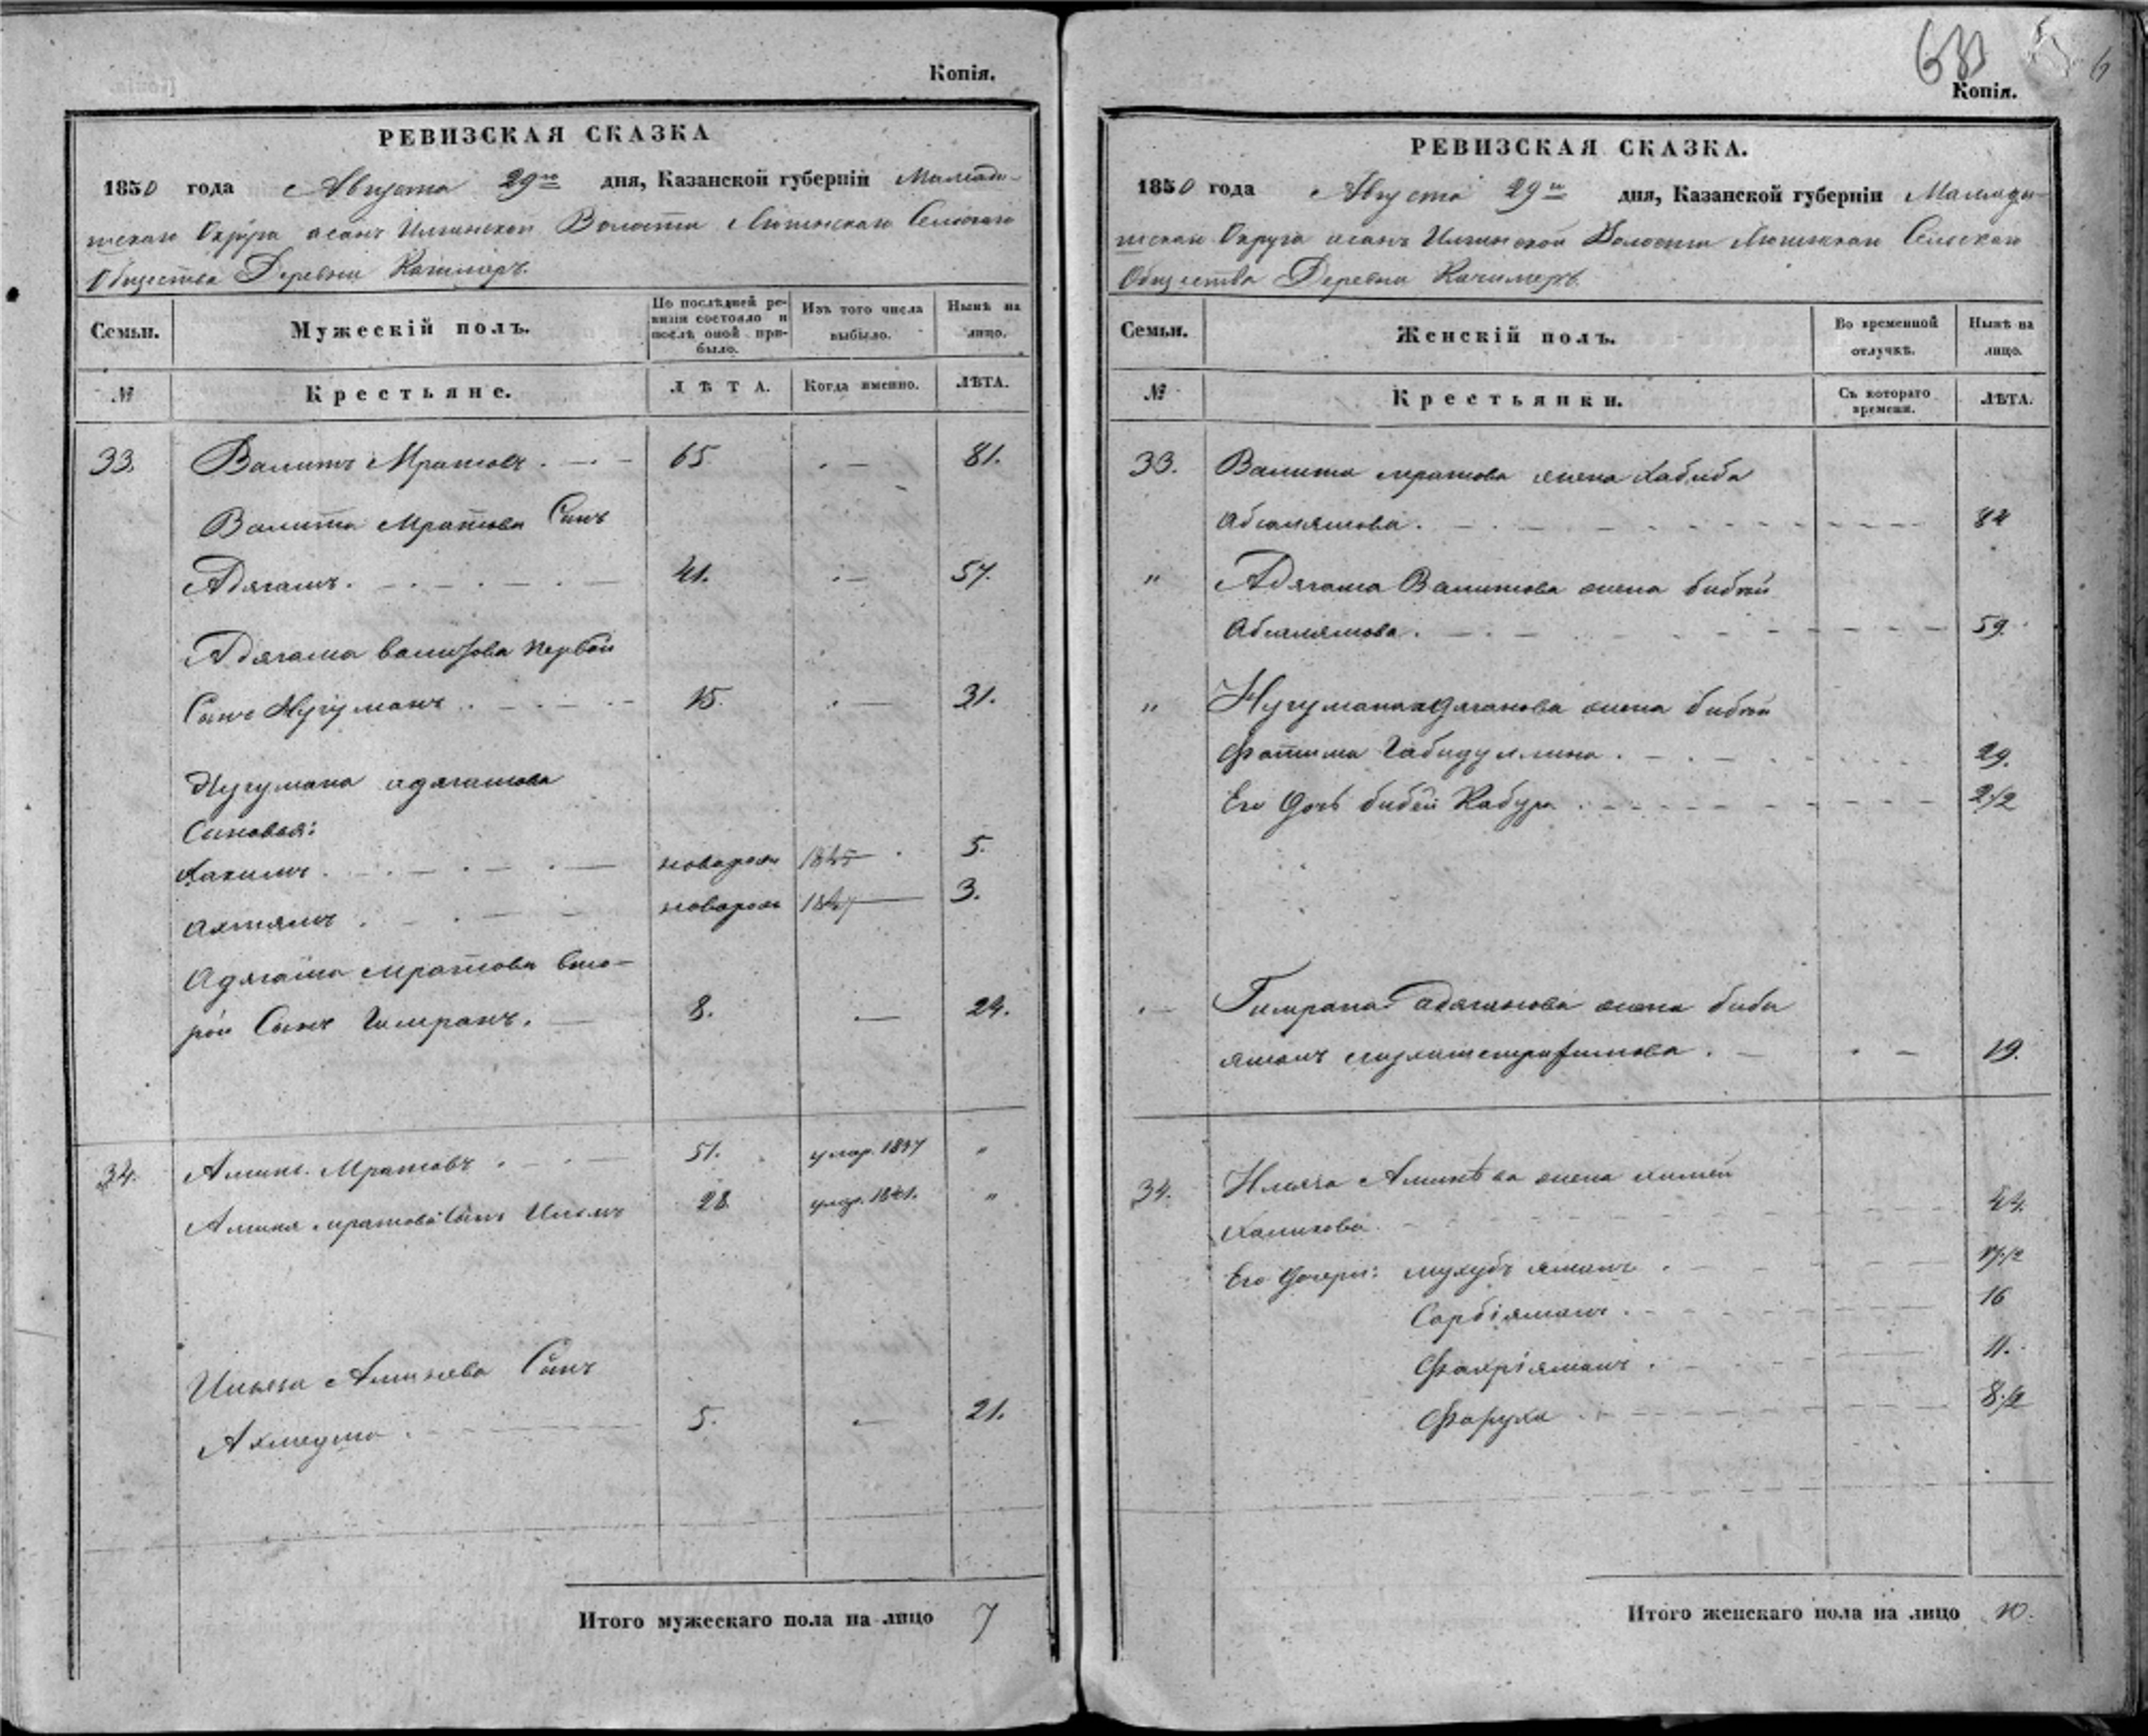 Копія.
РЕВИЗСКАЯ СКАЗКА
1850 года Августа 29го дня, Казанской губерніи Мамады-
шскаго Округа Асанъ Илгинской Волости Сельскаго
Общества Деревни Качимеръ.
Семьи. Мужескій полъ. По послѣдней ревизіи состояло и послѣ оной прибыло. Изъ того числа выбыло. Нынѣ на лицо.
№ Крестьяне. ЛѢТА. Когда именно. ЛѢТА.
33. Валитъ Мратовъ. 65 81.
Валита Мратова Сынъ
Адягамъ. 41. 57.
Адягама Валитова первой
Сынъ Нугуманъ 15. 31.
Нугумана Адягамова
Сыновья:
Хакимъ новорож 1845 5.
Ахтямъ новорож 1847 3.
Адягама Мратова вто-
рой Сынъ Гимранъ. 8. 24.
34. Аминь Мратовъ 51. умер. 1837 "
Аминя Мратова Сынъ 28. умер. 1841. "
Ильяса Аминева Сынъ
5. 21.
Итого мужескаго пола на лицо 7
Копія.
РЕВИЗСКАЯ СКАЗКА.
1850 года Августа 29го дня, Казанской губерніи Мамады-
шскаго Округа Асанъ Илгинской Волости Сельскаго
Общества Деревни Качимеръ.
Семьи. Женскій полъ. Во временной отлучкѣ. Нынѣ на лицо.
№ Крестьянки. Съ котораго времени. ЛѢТА.
33. Валита Мратова жена Хабиба
84
" Адягама Валитова жена бибей
59.
" Нугумана Адягамова жена бибей
Фатима Габидуллина 29.
Его дочь бибей Кабура 2 1/2
Гимрана Адягамова жена биби
19.
34. Аминева жена
Халикова 44.
Его Дочери: 17 1/2
Сарбіямалъ 16
Фахріямалъ 11.
Фаруха 8 1/2
Итого женскаго пола на лицо 10.